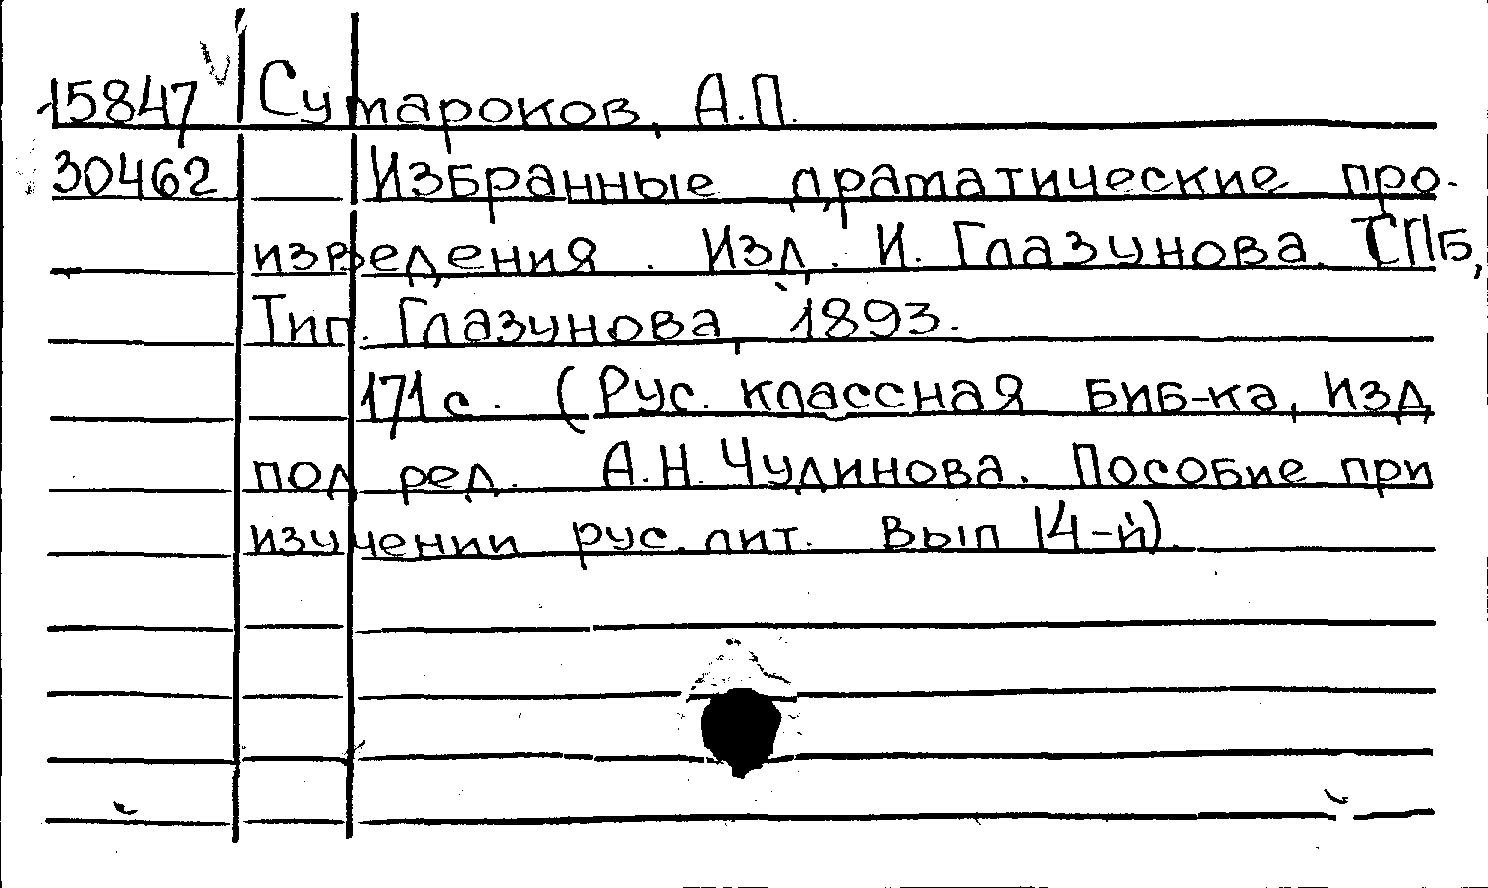 15847 Сумароков, А.П.
30462 Избранные драматические про-
изведения. Изд. И. Глазунова. СПБ,
Тип. Глазунова, 1893.
171 с. (Рус. классная биб-ка, изд
под ред. А.Н. Чудинова. Пособие при
изучении рус. лит. Вып 14-й).